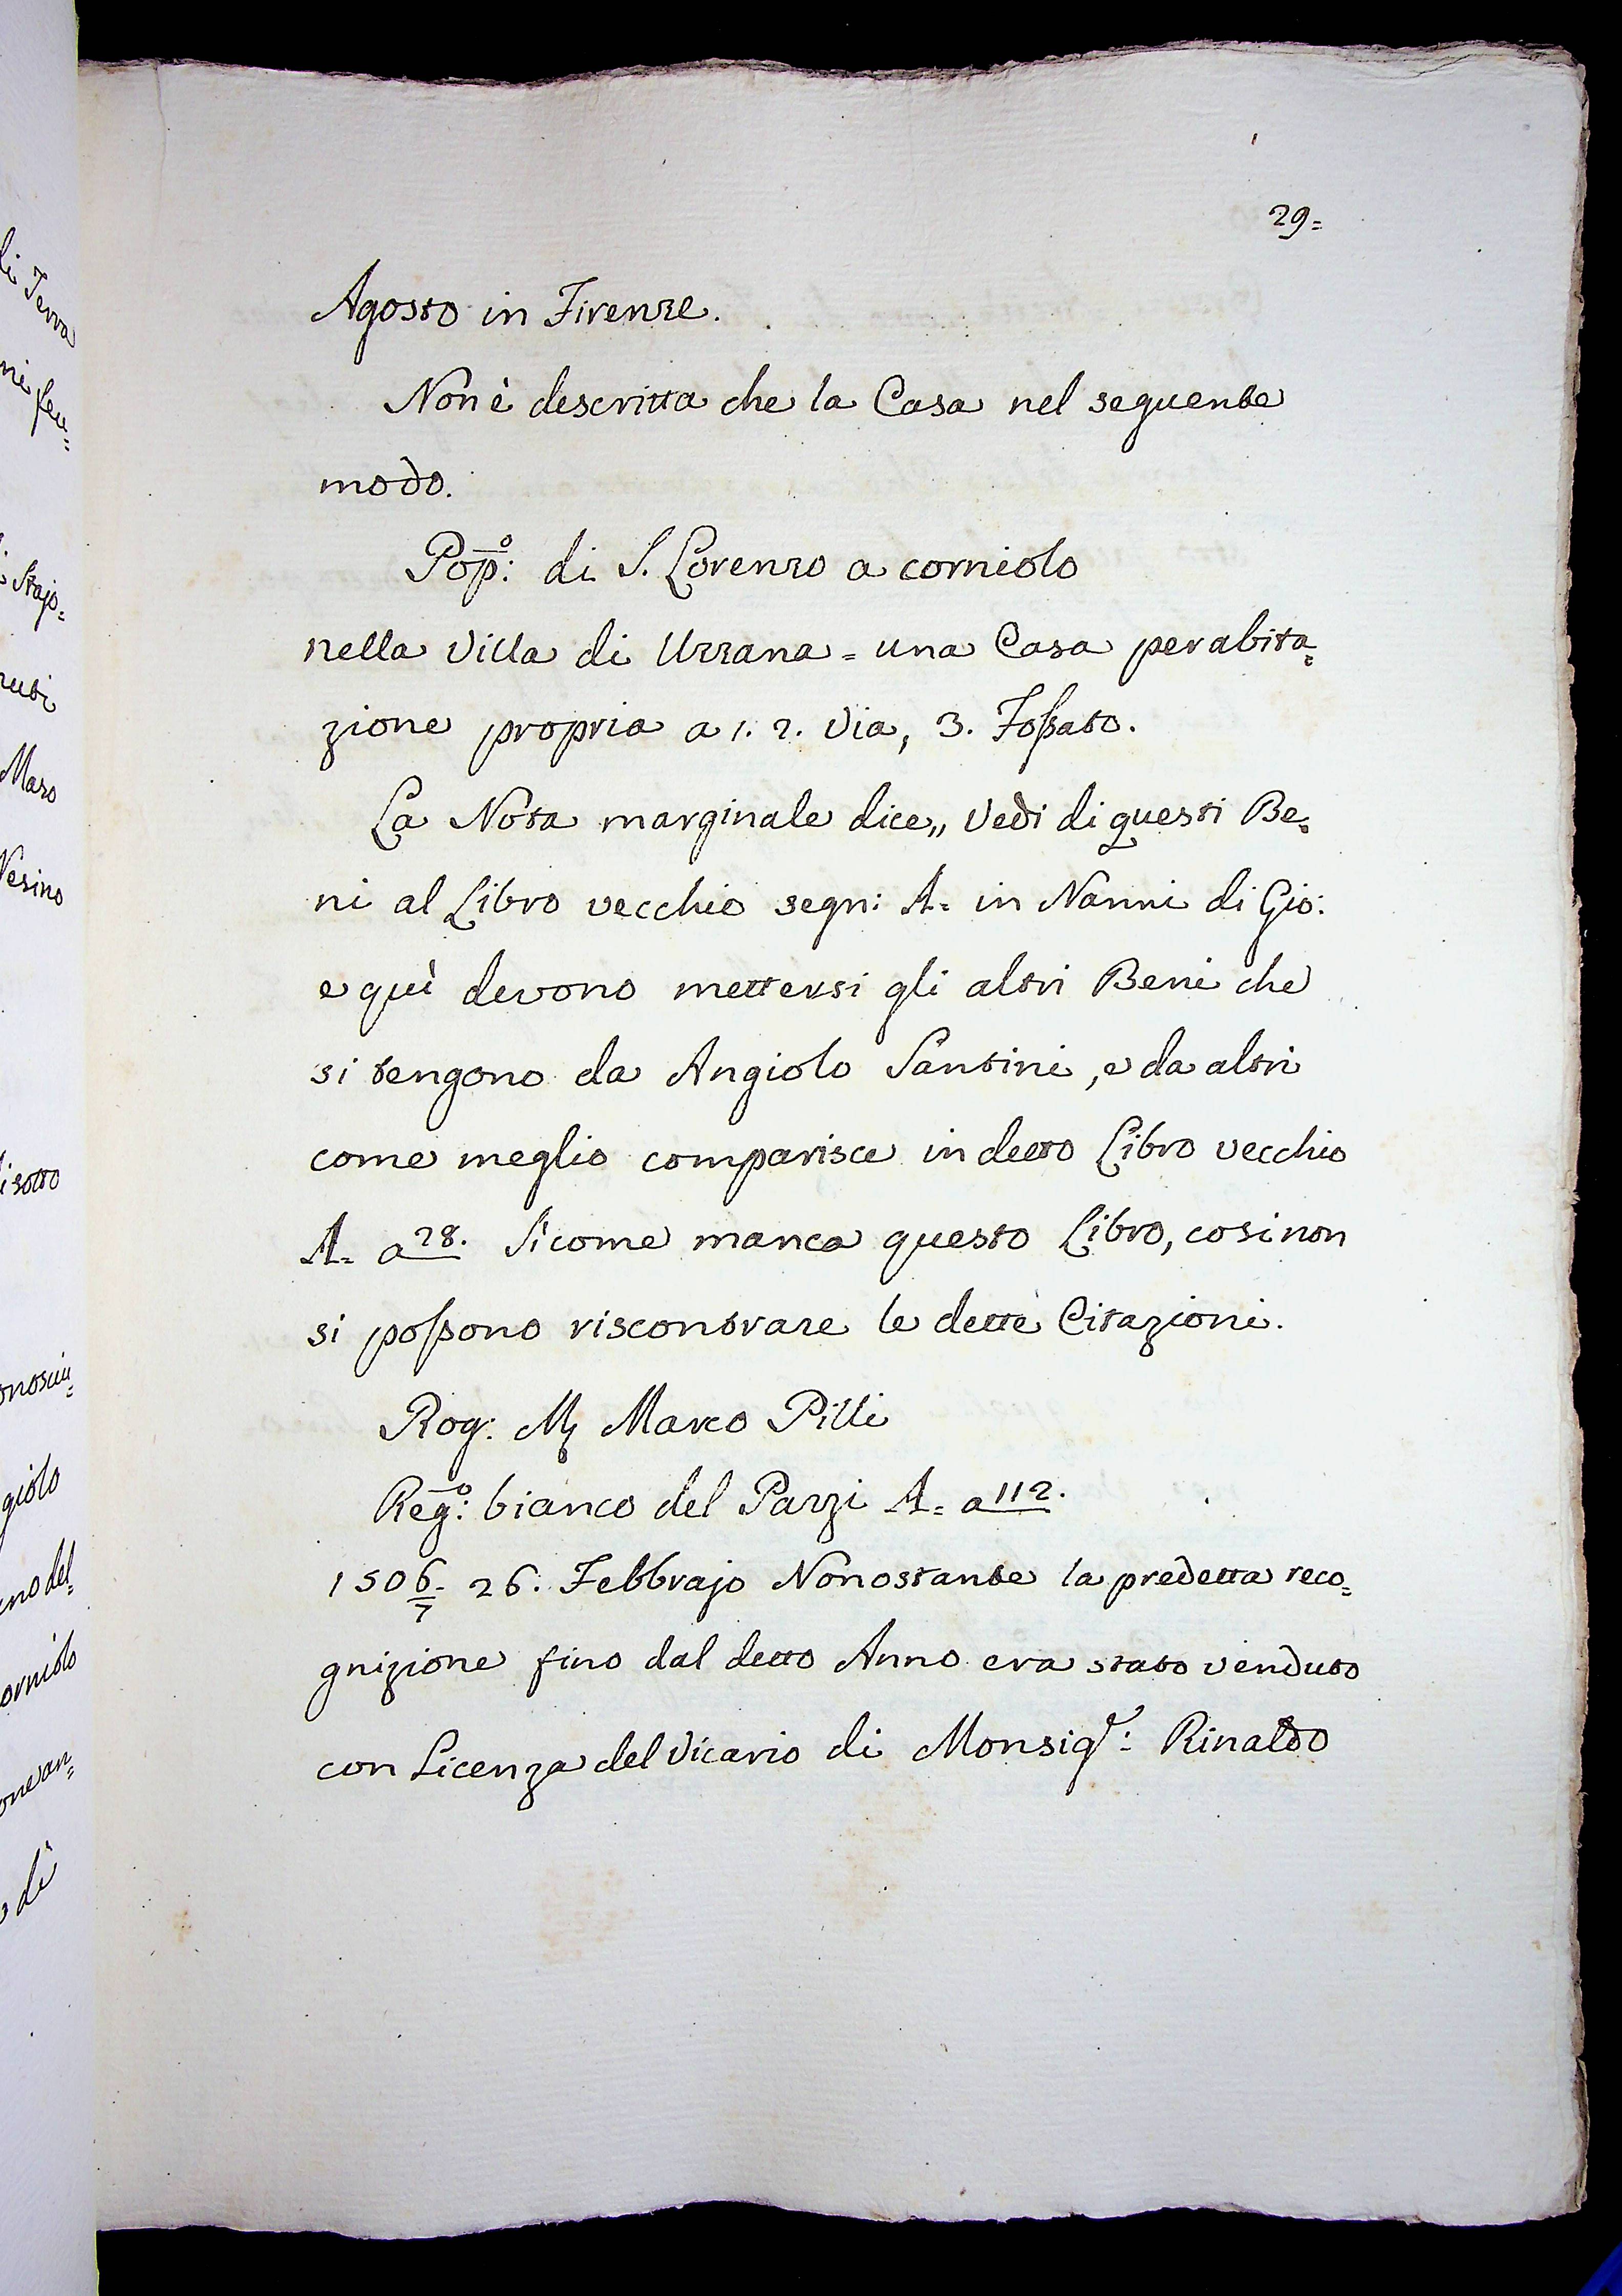 29=
Agosto in Firenze.
Non è descritta che la Casa nel seguente
modo.
Pop.º: di S. Lorenzo a corniolo
nella Villa di Uzzana = una Casa per abita=
zione propria a 1. 2. Via, 3. Foſsato.
La Nota marginale dice „ Vedi di questi Be=
ni al Libro vecchio segn: A= in Nanni di Gio:
e quì devono mettersi gli altri Beni che
si tengono da Angiolo Santini, e da altri
come meglio comparisce in detto Libro vecchio
A= a 28. Sicome manca questo Libro, cosi non
si poſsono riscontrare le dette Citazioni.
Rog: M Marco Pilli
Reg.º: bianco del Pazzi A= a 112.
1506/7 26. Febbrajo Nonostante la predetta reco=
gnizione fino dal detto Anno era stato venduto
con Licenza del Vicario di Monsig.r: Rinaldo
di Terra
Stajo=
Maso
Vesino
di sotto
giolo
no del=
orniolo
di